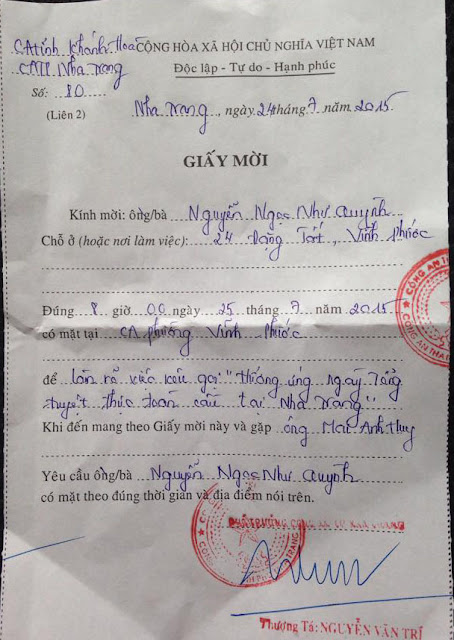 CA tỉnh Khánh Hoà CỘNG HÒA XÃ HỘI CHỦ NGHĨA VIỆT NAM
CATP Nha Trang Độc lập - Tự do - Hạnh phúc
Số: 80
(Liên 2) Nha Trang, ngày 24 tháng 7 năm 2015
GIẤY MỜI
Kính mời: ông/bà Nguyễn Ngọc Như Quỳnh
Chỗ ở (hoặc nơi làm việc): 24 Đặng Tất, Vĩnh Phước
Đúng 8 giờ 00 ngày 25 tháng 7 năm 2015
có mặt tại CA phường Vĩnh Phước
để làm rõ việc kêu gọi "hưởng ứng ngày tổng
tuyệt thực toàn cầu tại Nha Trang"
Khi đến mang theo Giấy mời này và gặp ông Mai Anh Huy
Yêu cầu ông/bà Nguyễn Ngọc Như Quỳnh
có mặt theo đúng thời gian và địa điểm nói trên.
PHÓ TRƯỞNG CÔNG AN
Thượng Tá: NGUYỄN VĂN TRÍ